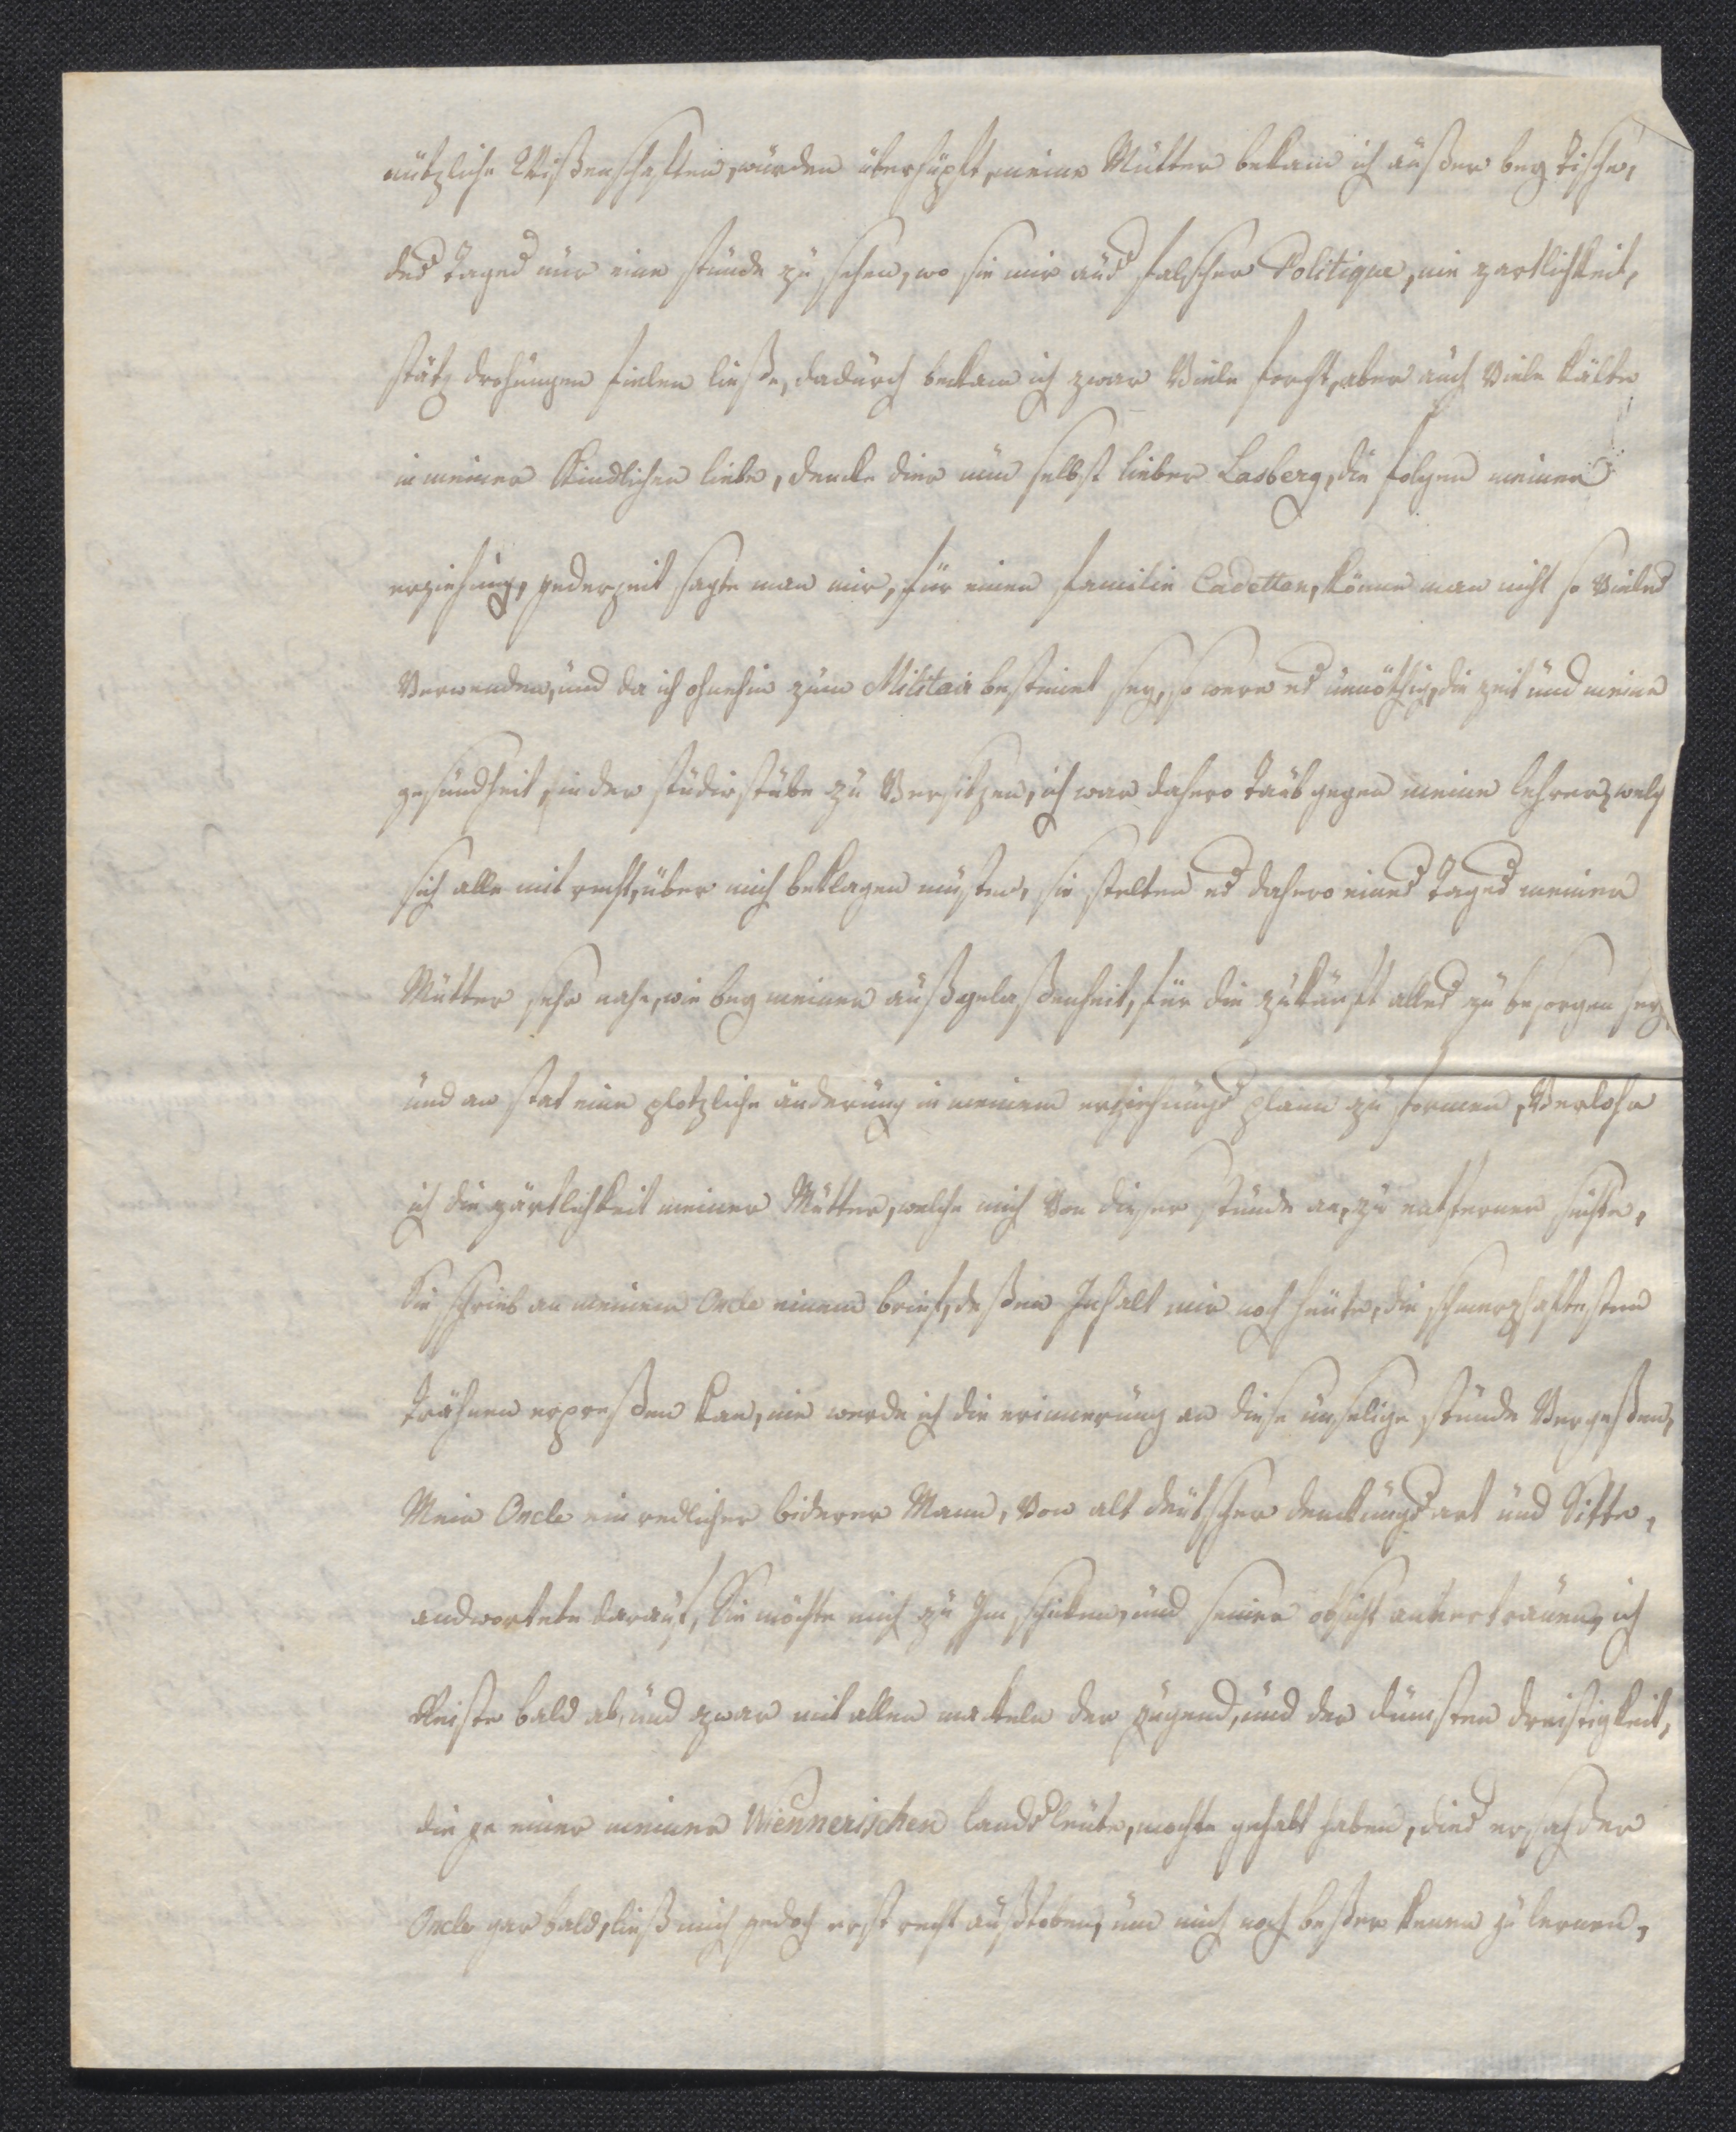 nützliche Wißenschaften, würden überhüpft, meine Mütter bekam ich äußer bey Tische,
des Tages nür eine stünde zü sehen, wo sie mir aüs falscher Politique, nie zartlichkeit,
stätz drohüngen fielen ließe, dadürch bekam ich zwar Viele forcht, aber aüch Viele kälte
in meiner Kindlichen liebe, dencke dier nün selbst lieber Lasberg, die folgen meiner
erziehüng, jederzeit sagte man mir, für einen familie Cadetten, könne man nicht so Vieles
Verwenden, ünd da ich ohnehin züm Militair bestimt sey, so were es ünnöthig, die zeit ünd meine
gesündheit, in der stüdirstübe zü Versitzen, ich war dahero taüb gegen meine lehrer, welch
sich alle mit recht, über mich beklagen müsten, sie stelten es dahero eines Tages meiner
Mütter sehr nahe, wie bey meiner aüßgelaßenheit, für die zükünft alles zü besorgen sey,
ünd an stat eine plotzliche änderüng in meinem erziehüngs plann zü formen, Verlohr
ich die zärtlichkeit meiner Mütter, welche mich Von dieser stünde an, zü entfernen süchte,
Sie schrieb an meinen Oncle einem brief, deßen Inhalt mir noch heüte, die schmerzhaftesten
trähnen erpreßen kan, nie werde ich die erinnerüng an diese ünselige stünde Vergeßen,
Mein Oncle ein redlicher biderer Mann, Von alt deütscher denküngsart ünd Sitte,
andwortete daraüf, Sie möchte mich zü Im schicken, ünd seiner obsicht anvertraüen, ich
Reiste bald ab, ünd zwar mit allen makeln der jügend, ünd der dümsten dreistigkeit,
die je einer meiner Wiennerischen landsleüte, mochte gehabt haben, dies ersah der
Oncle gar bald, ließ mich jedoch erst recht aüßtoben, üm mich noch beßer kenen zü lernen,